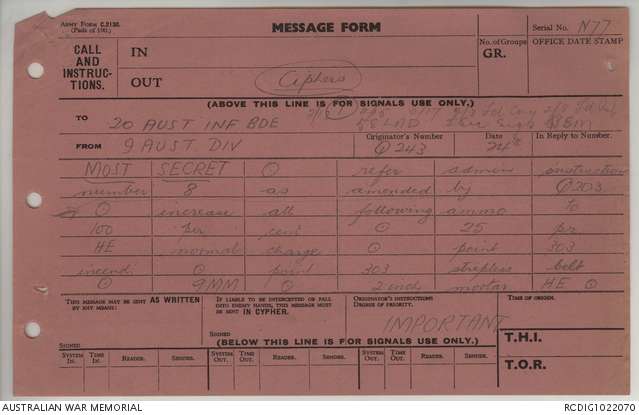 Army Form C.2136.
(Pads of 100.)
MESSAGE FORM
Serial No. N77
CALL AND INSTRUCTIONS.
IN
OUT
Ciphers
No. of Groups
GR.
OFFICE DATE STAMP
(ABOVE THIS LINE IS FOR SIGNALS USE ONLY.)
TO 20 AUST INF BDE
FROM 9 AUST DIV
Originator's Number
Q 243
Date
24
In Reply to Number.
MOST SECRET ⊙ refer admin instruction
number 8 as amended by Q203
⊙ increase all following ammo to
100 per cent ⊙ 25 pr
HE normal charge ⊙ point 303
incend ⊙ point 303 stripless belt
⊙ 9MM ⊙ 2 inch mortar HE ⊙
THIS MESSAGE MAY BE SENT AS WRITTEN BY ANY MEANS:
SIGNED
IF LIABLE TO BE INTERCEPTED OR FALL INTO ENEMY HANDS, THIS MESSAGE MUST BE SENT IN CYPHER.
SIGNED
ORIGINATOR'S INSTRUCTIONS DEGREE OF PRIORITY.
IMPORTANT
TIME OF ORIGIN.
(BELOW THIS LINE IS FOR SIGNALS USE ONLY.)
T.H.I.
T.O.R.
SYSTEM IN. TIME IN. READER. SENDER. SYSTEM OUT. TIME OUT. READER. SENDER. SYSTEM OUT. TIME OUT. READER. SENDER.
AUSTRALIAN WAR MEMORIAL
RCDIG1022070